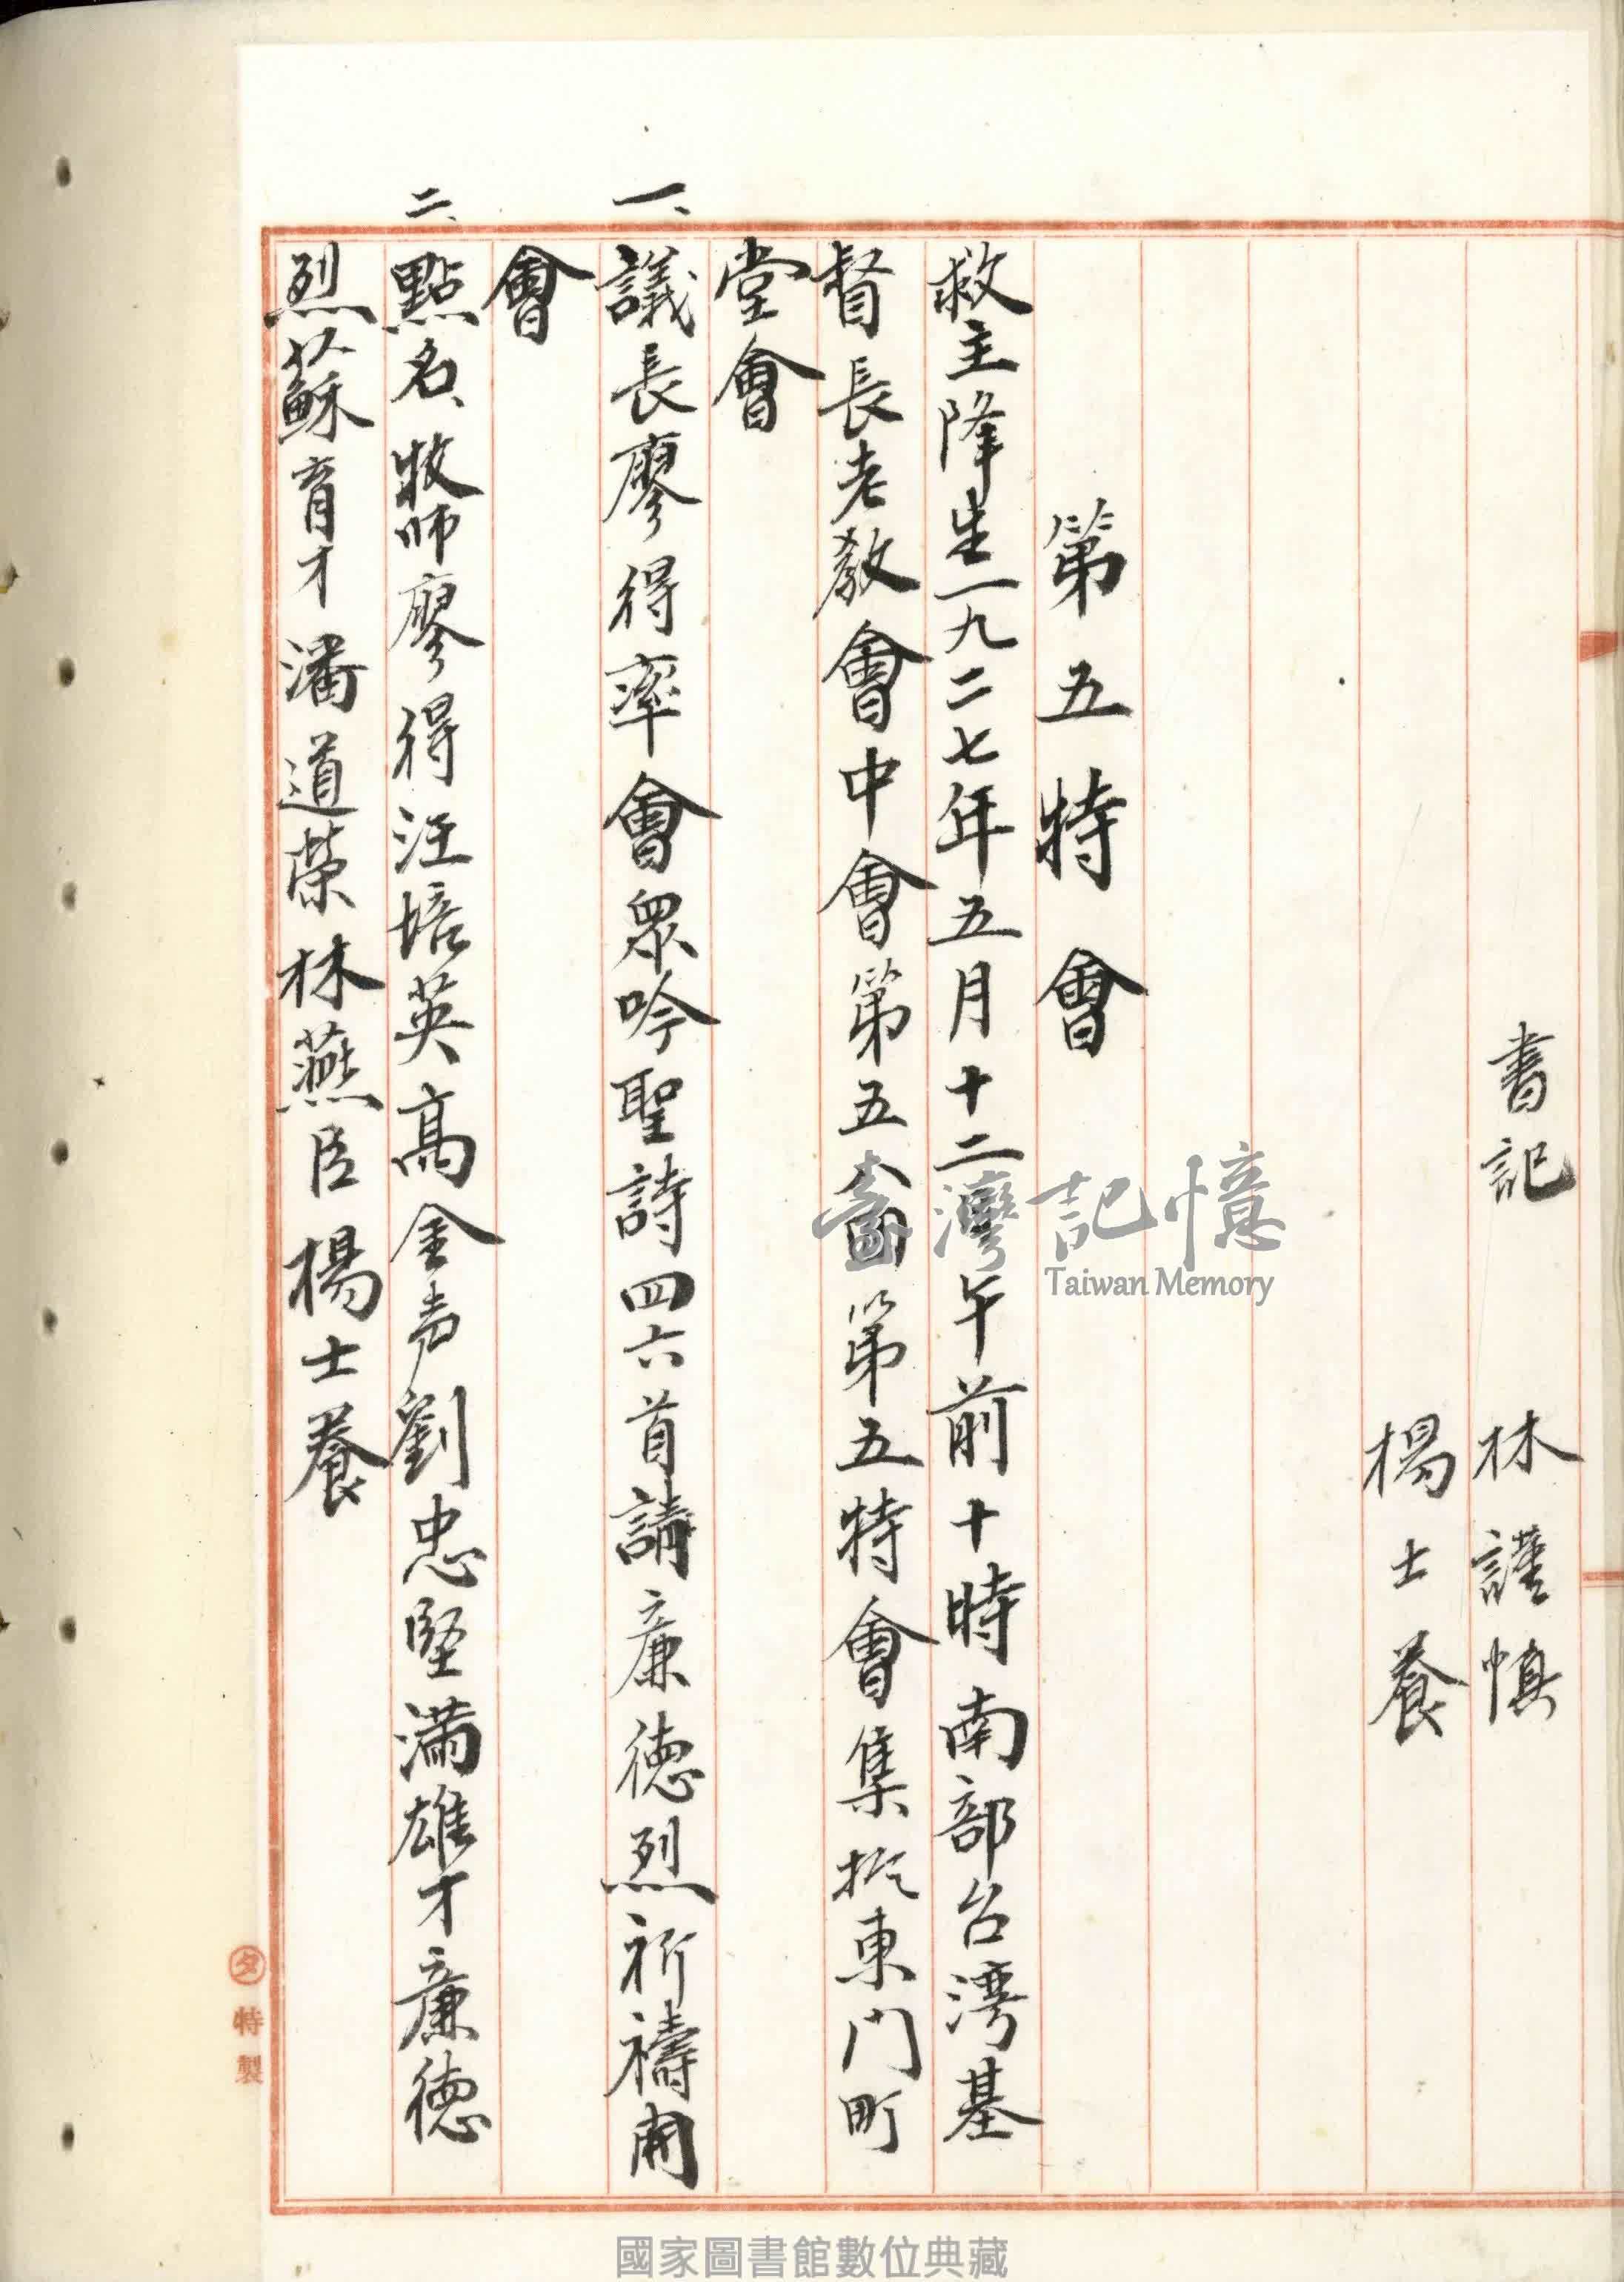 書記 林謹慎
楊士養
第五特會
救主降生一九二七年五月十二午前十時南部台湾基
督長老教會中會第五回第五特會集於東門町
堂會
一、議長廖得率會眾吟聖詩四六首請廉德烈祈禱開
會
二、點名、牧師廖得汪培英高金声劉忠堅滿雄才廉德
烈蘇育才潘道榮林燕臣楊士養
特製
臺灣記憶
Taiwan Memory
國家圖書館數位典藏